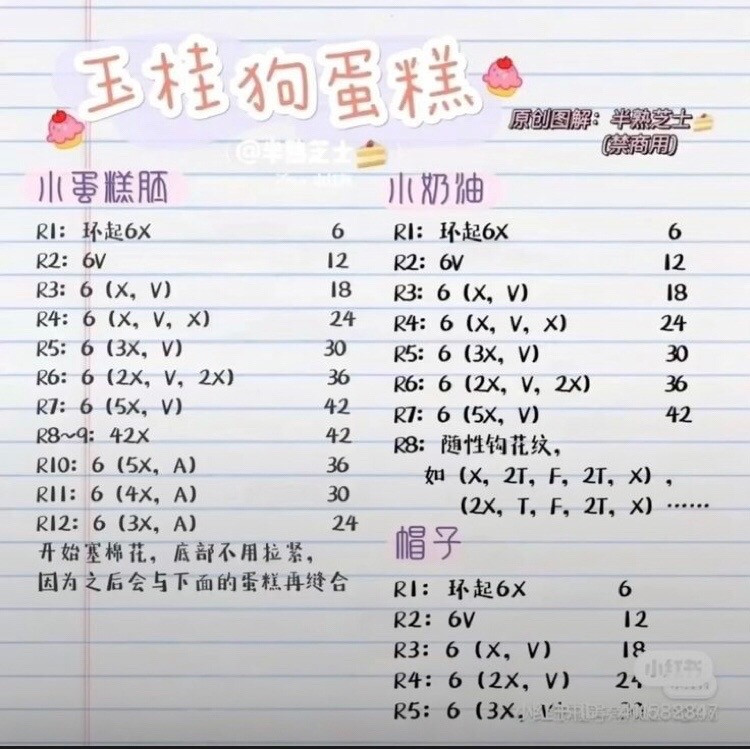 玉桂狗蛋糕
原创图解：半熟芝士
(禁商用)
@半熟芝士
小蛋糕胚
R1：环起6X 6
R2：6V 12
R3：6（X，V） 18
R4：6（X，V，X） 24
R5：6（3X，V） 30
R6：6（2X，V，2X） 36
R7：6（5X，V） 42
R8~9：42X 42
R10：6（5X，A） 36
R11：6（4X，A） 30
R12：6（3X，A） 24
开始塞棉花，底部不用拉紧，
因为之后会与下面的蛋糕再缝合
小奶油
R1：环起6X 6
R2：6V 12
R3：6（X，V） 18
R4：6（X，V，X） 24
R5：6（3X，V） 30
R6：6（2X，V，2X） 36
R7：6（5X，V） 42
R8：随性钩花纹，
如（X，2T，F，2T，X），
（2X，T，F，2T，X）……
帽子
R1：环起6X 6
R2：6V 12
R3：6（X，V） 18
R4：6（2X，V） 24
R5：6（3X，
小红书